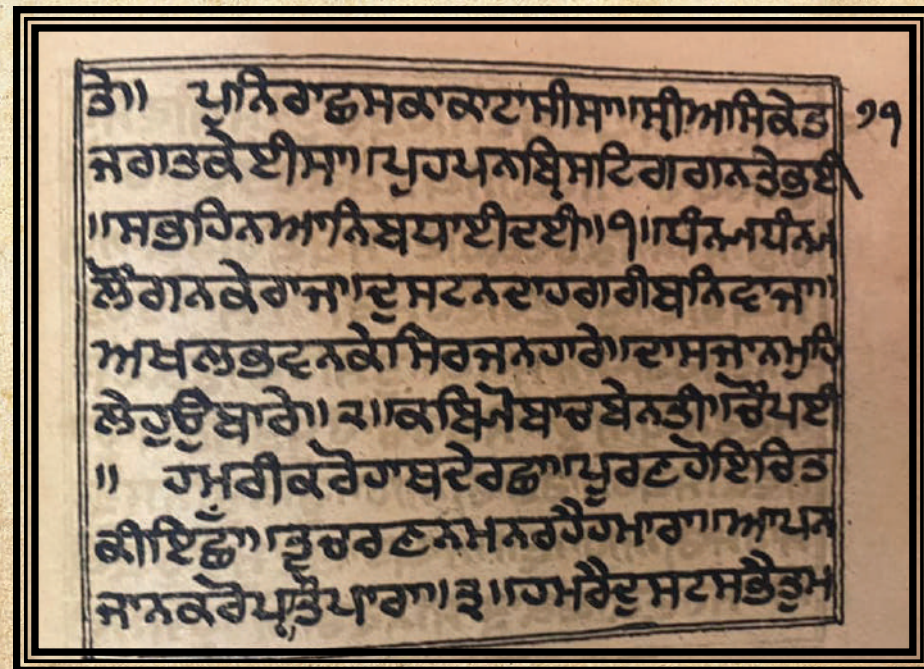 ਤੇ॥ ਪੁਨਿਰਾਛਸਕਾਕਾਟਾਸੀਸਾ॥ਸ੍ਰੀਅਸਿਕੇਤ ੭੧
ਜਗਤਕੇਈਸਾ॥ਪੁਹਪਨਬ੍ਰਿਸਟਿਗਗਨਤੇਭਈ
॥ਸਭਹਿਨਆਨਿਬਧਾਈਦਈ॥੧॥ਧੰਨ੍ਯਧੰਨ੍ਯ
ਲੋਗਨਕੇਰਾਜਾ॥ਦੁਸਟਨਦਾਹਗਰੀਬਨਿਵਾਜਾ॥
ਅਖਲਭਵਨਕੇਸਿਰਜਨਹਾਰੇ॥ਦਾਸਜਾਨਮੁਹਿ
ਲੇਹੁਉਬਾਰੇ॥੨॥ਕਬਿਜੋਬਾਚਬੇਨਤੀ॥ਚੌਪਈ
॥ ਹਮਰੀਕਰੋਹਾਥਦੇਰਛਾ॥ਪੂਰਣਹੋਇਚਿਤ
ਕੀਇਛਾ॥ਤ੍ਵਚਰਣਨਮਨਰਹੈਹਮਾਰਾ॥ਆਪਨ
ਜਾਨਕਰੋਪ੍ਰਤਿਪਾਰਾ॥੩॥ਹਮਰੈਦੁਸਟਸਭੈਤੁਮ